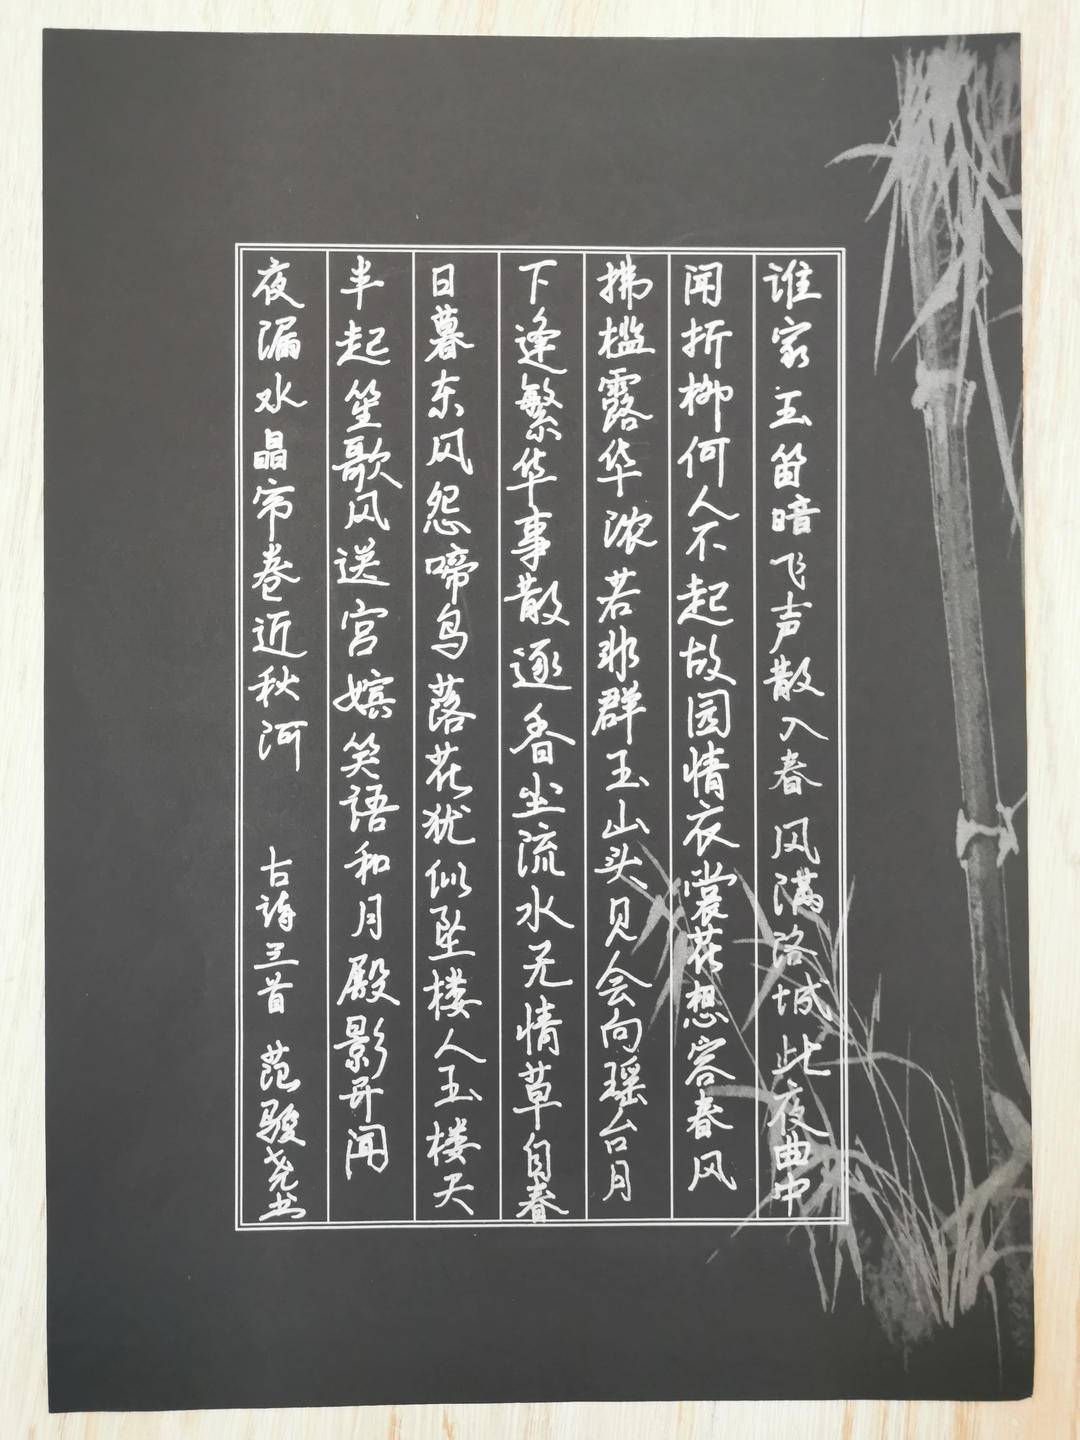 谁家玉笛暗飞声散入春风满洛城此夜曲中
闻折柳何人不起故园情衣裳花想容春风
拂槛露华浓若非群玉山头见会向瑶台月
下逢繁华事散逐香尘流水无情草自春
日暮东风怨啼鸟落花犹似坠楼人玉楼天
半起笙歌风送宫嫔笑语和月殿影开闻
夜漏水晶帘卷近秋河 古诗三首 范骏尧书